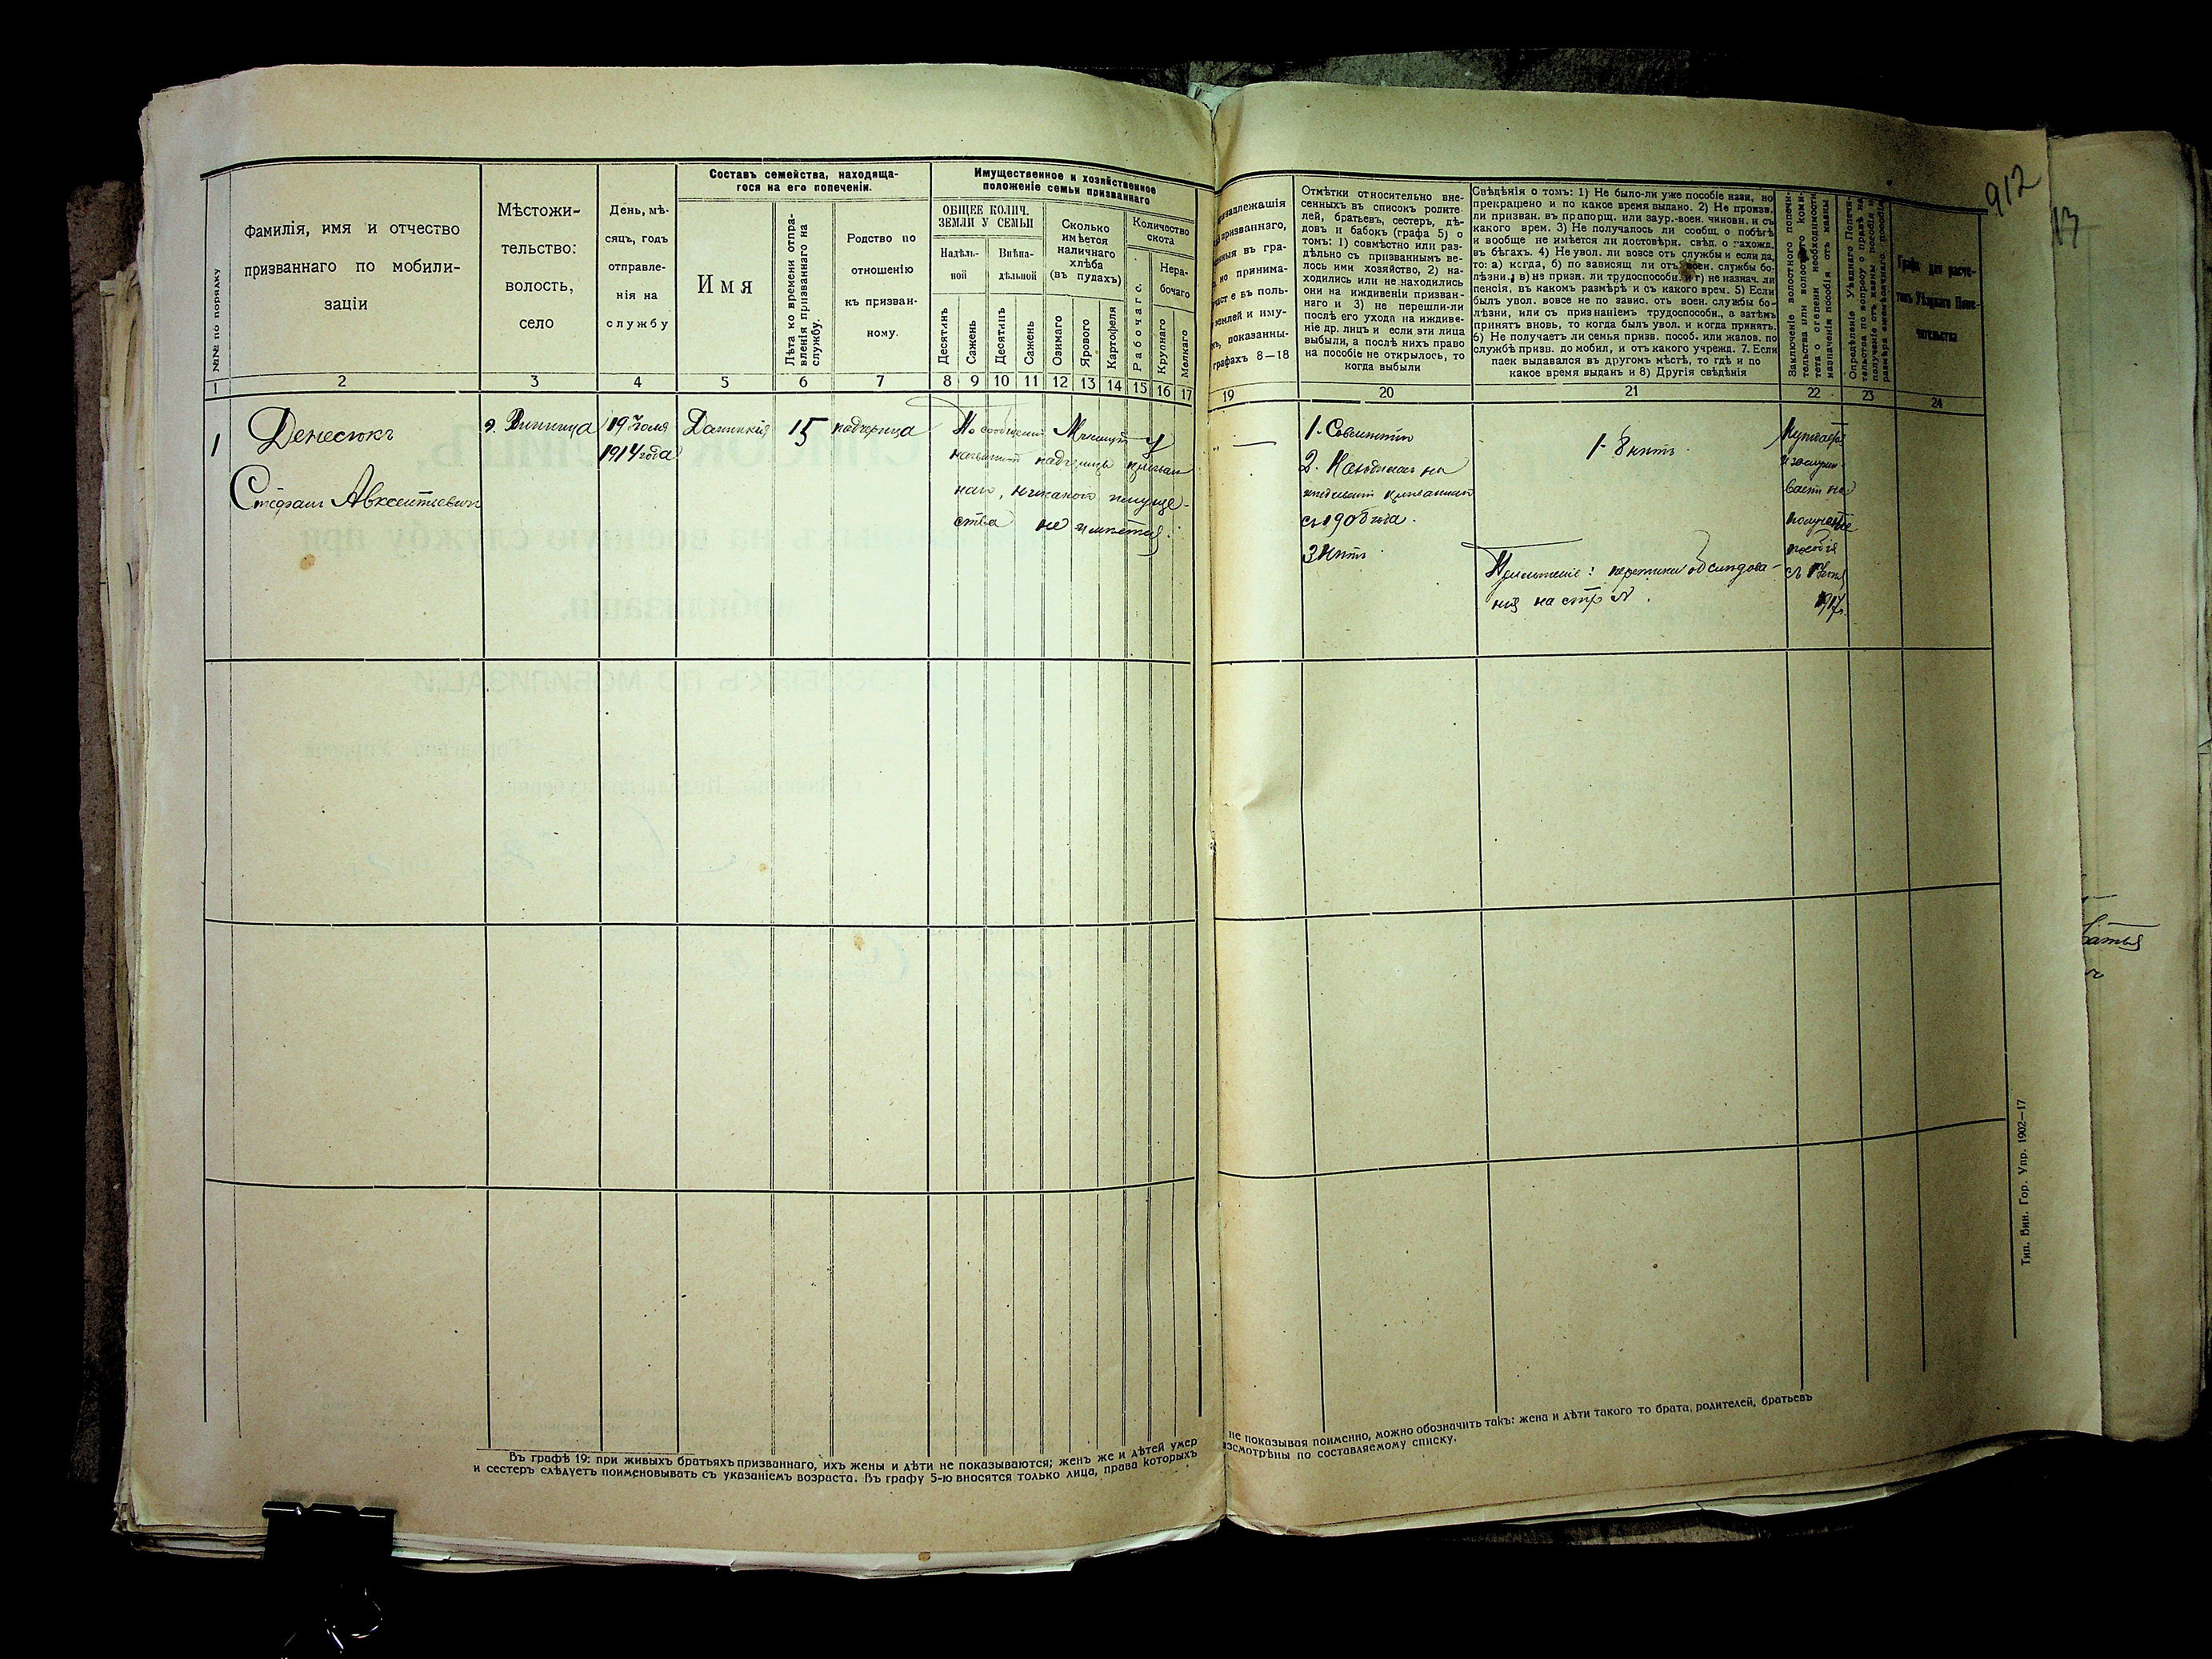 912
13
Составъ семейства, находяща-
гося на его попеченіи.
Имущественное и хозяйственное
положеніе семьи призваннаго
№№ по порядку
Фамилія, имя и отчество
призваннаго по мобили-
заціи
Мѣстожи-
тельство:
волость,
село
День, мѣ-
сяцъ, годъ
отправле-
нія на
службу
Имя
Лѣта ко времени отпра-
вленія призваннаго на
службу.
Родство по
отношенію
къ призван-
ному.
ОБЩЕЕ КОЛИЧ.
ЗЕМЛИ У СЕМЬИ
Надѣль-
ной
Внѣна-
дѣльной
Десятинъ
Сажень
Десятинъ
Сажень
Сколько
имѣется
наличнаго
хлѣба
(въ пудахъ)
Озимаго
Ярового
Картофеля
Количество
скота
Рабочаго.
Нера-
бочаго
Крупнаго
Мелкаго
надлежашія
призваннаго,
въ гра-
но принима-
е въ поль-
землей и иму-
показанны-
графахъ 8—18
Отмѣтки относительно вне-
сенныхъ въ списокъ родите-
лей, братьевъ, сестеръ, дѣ-
довъ и бабокъ (графа 5) о
томъ: 1) совмѣстно или раз-
дѣльно съ призваннымъ ве-
лось ими хозяйство, 2) на-
ходились или не находились
они на иждивеніи призван-
наго и 3) не перешли-ли
послѣ его ухода на иждиве-
ніе др. лицъ и если эти лица
выбыли, а послѣ нихъ право
на пособіе не открылось, то
когда выбыли
Свѣдѣнія о томъ: 1) Не было-ли уже пособіе назн, но
прекращено и по какое время выдано. 2) Не произв.
ли призван. въ прапорщ. или заур.-воен. чиновн. и съ
какого врем. 3) Не получалось ли сообщ. о побѣгѣ
и вообще не имѣется ли достовѣрн. свѣд. о нахожд.
въ бѣгахъ. 4) Не увол. ли вовсе отъ службы и если да,
то: а) когда, б) по зависящ ли отъ воен. службы бо-
лѣзни, в) не призн. ли трудоспособн. и г) не назнач. ли
пенсія, въ какомъ размѣрѣ и съ какого врем. 5) Если
былъ увол. вовсе не по завис. отъ воен. службы бо-
лѣзни, или съ признаніемъ трудоспособн., а затѣмъ
принятъ вновь, то когда былъ увол. и когда принятъ.
6) Не получаетъ ли семья призв. пособ. или жалов. по
службѣ призв. до мобил, и отъ какого учрежд. 7. Если
паек выдавался въ другомъ мѣстѣ, то гдѣ и по
какое время выданъ и 8) Другія свѣдѣнія
Заключеніе волостного попечи-
тельства или волостного коми-
тета о степени необходимости
назначенія пособія отъ казны
Опредѣленіе Уѣзднаго Попечи-
тельства по вопросу о правѣ на
полученіе отъ казны пособія и
размѣра ежемѣсячнаго пособія
Графа для расче-
товъ Уѣзднаго Попе-
чительства
1 2 3 4 5 6 7 8 9 10 11 12 13 14 15 16 17 19 20 21 22 23 24
1
Денесюкъ
Стефанъ Авксентіевичъ
г. Винница
19 Іюля
1914 года
15
падчерица
По сообщенію
падчерицы
никакого имуще-
ства не имѣется.
1. Совмѣстно
2. Находилась на
иждивеніи призваннаго
съ 1908 года.
3 Нѣтъ
1-8 нѣтъ.
на стр №
Нуждается
и заслужи-
ваетъ на
полученіе
пособія
1917 г.
Въ графѣ 19: при живыхъ братьяхъ призваннаго, ихъ жены и дѣти не показываются; женъ же и дѣтей умер
и сестеръ слѣдуетъ поименовывать съ указаніемъ возраста. Въ графу 5-ю вносятся только лица, права которыхъ
не показывая поименно, можно обозначить такъ: жена и дѣти такого то брата, родителей, братьевъ
азсмотрѣны по составляемому списку.
Тип. Вин. Гор. Упр. 1902—17